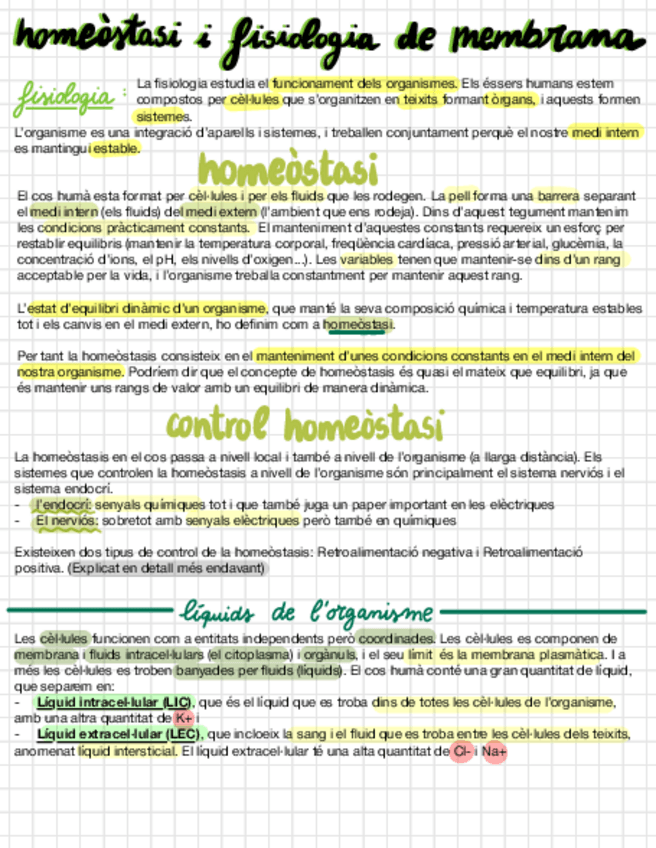 homeòstasi i fisiologia de membrana
fisiologia: La fisiologia estudia el funcionament dels organismes. Els éssers humans estem
compostos per cèl·lules que s'organitzen en teixits formant òrgans, i aquests formen
sistemes.
L'organisme es una integració d'aparells i sistemes, i treballen conjuntament perquè el nostre medi intern
es mantingui estable.
homeòstasi
El cos humà esta format per cèl·lules i per els fluids que les rodegen. La pell forma una barrera separant
el medi intern (els fluids) del medi extern (l'ambient que ens rodeja). Dins d'aquest tegument mantenim
les condicions pràcticament constants. El manteniment d'aquestes constants requereix un esforç per
restablir equilibris (mantenir la temperatura corporal, freqüència cardíaca, pressió arterial, glucèmia, la
concentració d'ions, el pH, els nivells d'oxigen...). Les variables tenen que mantenir-se dins d'un rang
acceptable per la vida, i l'organisme treballa constantment per mantenir aquest rang.
L'estat d'equilibri dinàmic d'un organisme, que manté la seva composició química i temperatura estables
tot i els canvis en el medi extern, ho definim com a homeòstasi.
Per tant la homeòstasis consisteix en el manteniment d'unes condicions constants en el medi intern del
nostra organisme. Podríem dir que el concepte de homeòstasis és quasi el mateix que equilibri, ja que
és mantenir uns rangs de valor amb un equilibri de manera dinàmica.
control homeòstasi
La homeòstasis en el cos passa a nivell local i també a nivell de l'organisme (a llarga distància). Els
sistemes que controlen la homeòstasis a nivell de l'organisme són principalment el sistema nerviós i el
sistema endocrí.
- l'endocrí: senyals químiques tot i que també juga un paper important en les elèctriques
- El nerviós: sobretot amb senyals elèctriques però també en químiques
Existeixen dos tipus de control de la homeòstasis: Retroalimentació negativa i Retroalimentació
positiva. (Explicat en detall més endavant)
líquids de l'organisme
Les cèl·lules funcionen com a entitats independents però coordinades. Les cèl·lules es componen de
membrana i fluids intracel·lulars (el citoplasma) i orgànuls, i el seu límit és la membrana plasmàtica. I a
més les cèl·lules es troben banyades per fluids (líquids). El cos humà conté una gran quantitat de líquid,
que separem en:
- Líquid intracel·lular (LIC), que és el líquid que es troba dins de totes les cèl·lules de l'organisme,
amb una altra quantitat de K+ i
- Líquid extracel·lular (LEC), que incloeix la sang i el fluid que es troba entre les cèl·lules dels teixits,
anomenat líquid intersticial. El líquid extracel·lular té una alta quantitat de Cl- i Na+